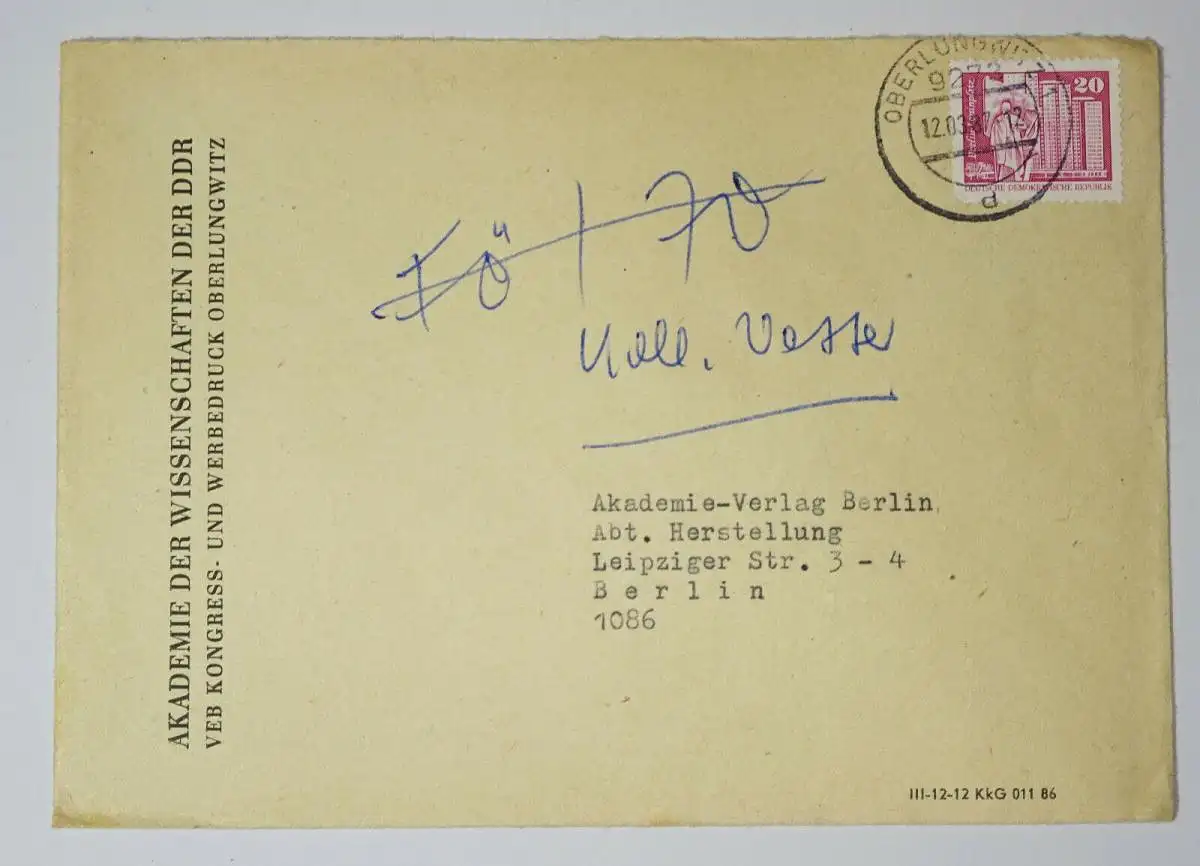 AKADEMIE DER WISSENSCHAFTEN DER DDR
VEB KONGRESS- UND WERBEDRUCK OBERLUNGWITZ
OBERLUNGWITZ 1
9273
12.03.87-12
d
20
Berlin, Leninplatz
DEUTSCHE DEMOKRATISCHE REPUBLIK
Koll.
Akademie-Verlag Berlin
Abt. Herstellung
Leipziger Str. 3 - 4
B e r l i n
1086
III-12-12 KkG 011 86